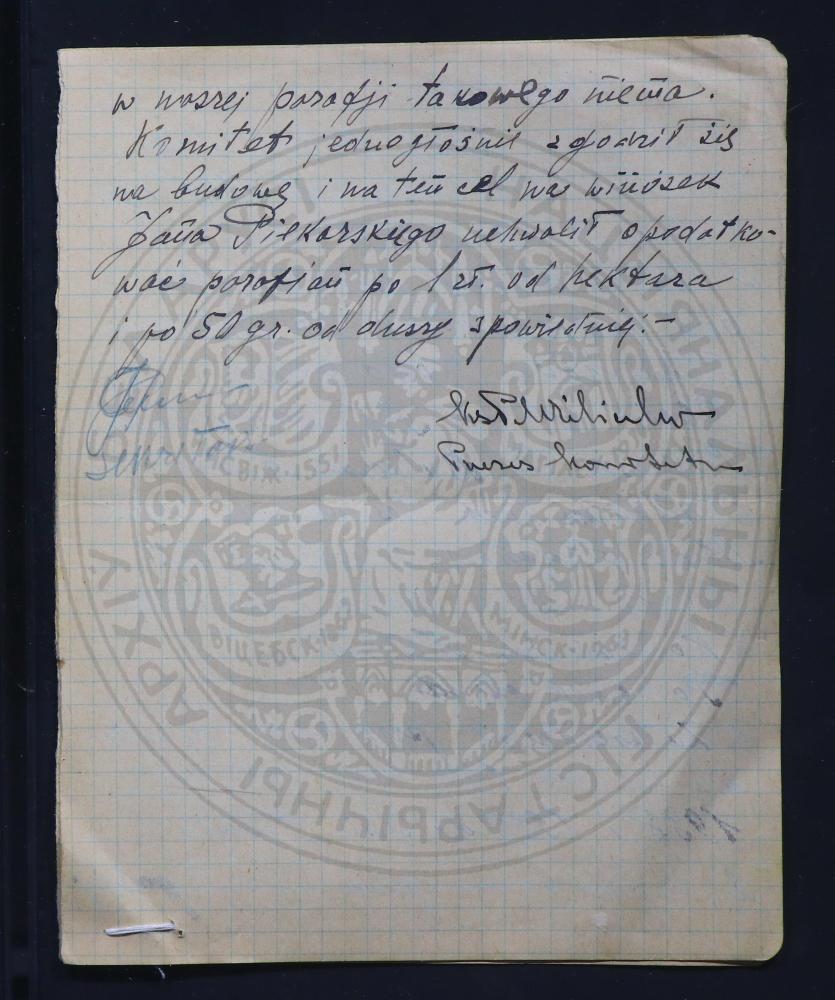 w naszej parafji takowego niema.
Komitet jednogłośnie zgodził się
na budowę i na ten cel na wniosek
Jana Piekarskiego uchwalił opodatko-
wać parafian po 1 zł. od hektara
i po 50 gr. od duszy spowiedniej.–
Ks P.
Sekretarz
Prezes Komitetu
НЯСВІЖ·1551
ВІЦЕБСК·
МІНСК·
АРХІЎ
ГІСТАРЫЧНЫ